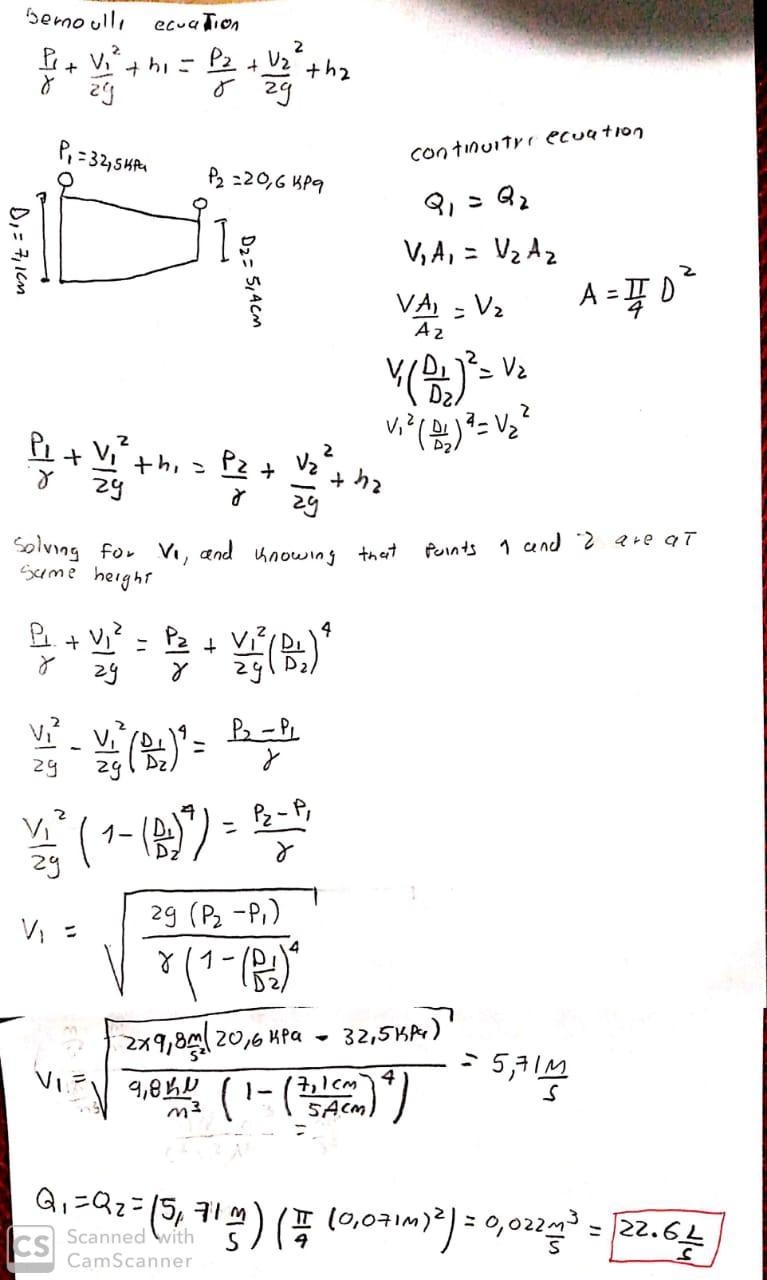 Bernoulli ecuation
P1/γ + V1²/2g + h1 = P2/γ + V2²/2g + h2
P1 = 32,5KPa
P2 = 20,6 KPa
D1 = 7,1cm
D2 = 5,4cm
continuityr ecuation
Q1 = Q2
V1A1 = V2A2
VA1/A2 = V2
A = π/4 D²
V1(D1/D2)² = V2
V1²(D1/D2)⁴ = V2²
P1/γ + V1²/2g + h1 = P2/γ + V2²/2g + h2
Solving for V1, and knowing that points 1 and 2 are at
same height
P1/γ + V1²/2g = P2/γ + V1²/2g (D1/D2)⁴
V1²/2g - V1²/2g (D1/D2)⁴ = P2-P1/γ
V1²/2g (1-(D1/D2)⁴) = P2-P1/γ
V1 = √ 2g (P2-P1) / γ(1-(D1/D2)⁴
V1 = √ 2x9,8m/s² (20,6 KPa - 32,5KPa) / 9,8KN/m³ (1-(7,1cm/5,4cm)⁴) = 5,71 M/s
Q1=Q2= (5,71 m/s) (π/4 (0,071m)²) = 0,022 m³/s = 22.6 L/s
CS Scanned with
CamScanner